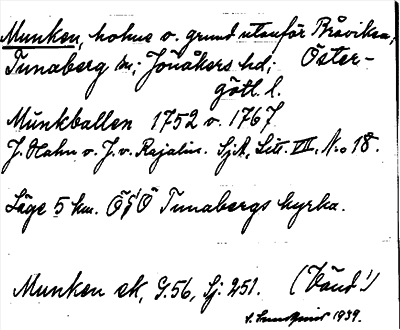 Munken, holme o. grund utanför Bråviken,
Tunaberg sn; Jönåkers hd; Öster-
götl. l.
Munkballen 1752 o. 1767.
J. Hahn o. J. v. Rajalin. SjA, Litt. VII, No 18.
Läge 5 km. ÖfÖ Tunabergs kyrka.
Munken ek, G.56, Sj. 251. (Vänd!)
1939.